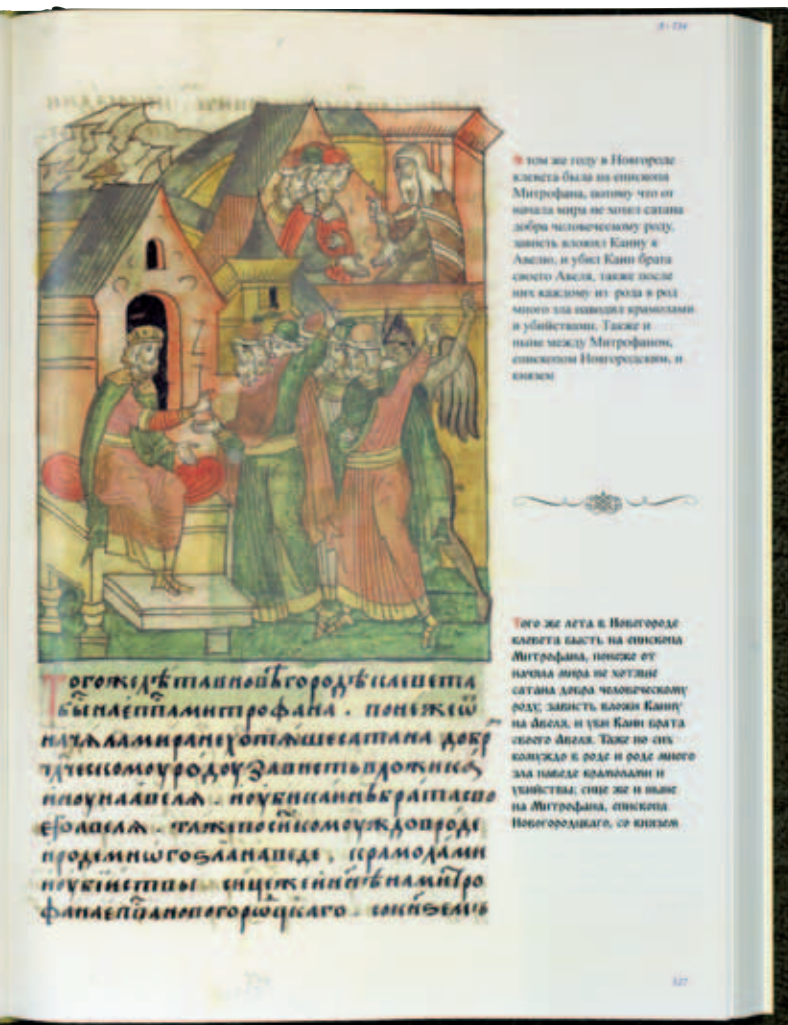 том же году в Новгороде
клевета была на епископа
Митрофана, потому что от
начала мира не хотел сатана
добра человеческому роду,
зависть вложил Каину к
Авелю, и убил Каин брата
своего Авеля, также после
них каждому из рода в род
много зла наводил крамолами
и убийствами. Также и
ныне между Митрофаном,
епископом Новгородским, и
князем
Того же лета в Новегороде
клевета бысть на епископа
Митрофана, понеже от
начала мира не хотяше
сатана добра человоческому
роду; зависть вложи Каину
на Авеля, и уби Каин брата
своего Авеля. Таже по сих
комуждо в роде и роде много
зла наведе крамолами и
убийствы; сице же и ныне
на Митрофана, епископа
Новогородцкаго, со князем
Тогожелѣтавновѣгородѣклевета
бы́наеп̑памитрофана . понежеѿ
начѧламиранехотѧшесатана добр
чл̑ческомоуродоу завистьвложика
иноунаавелѧ . ноубикаинъбратасво
егоавелѧ . тажепоси̑комоуждовроде
иродемнѡгоѕланаведе , крамолами
ноубіиствы сицежеиин̑ѣнамитро
фанаеп̑пановогорѡцкаго . сокнѧземъ
327